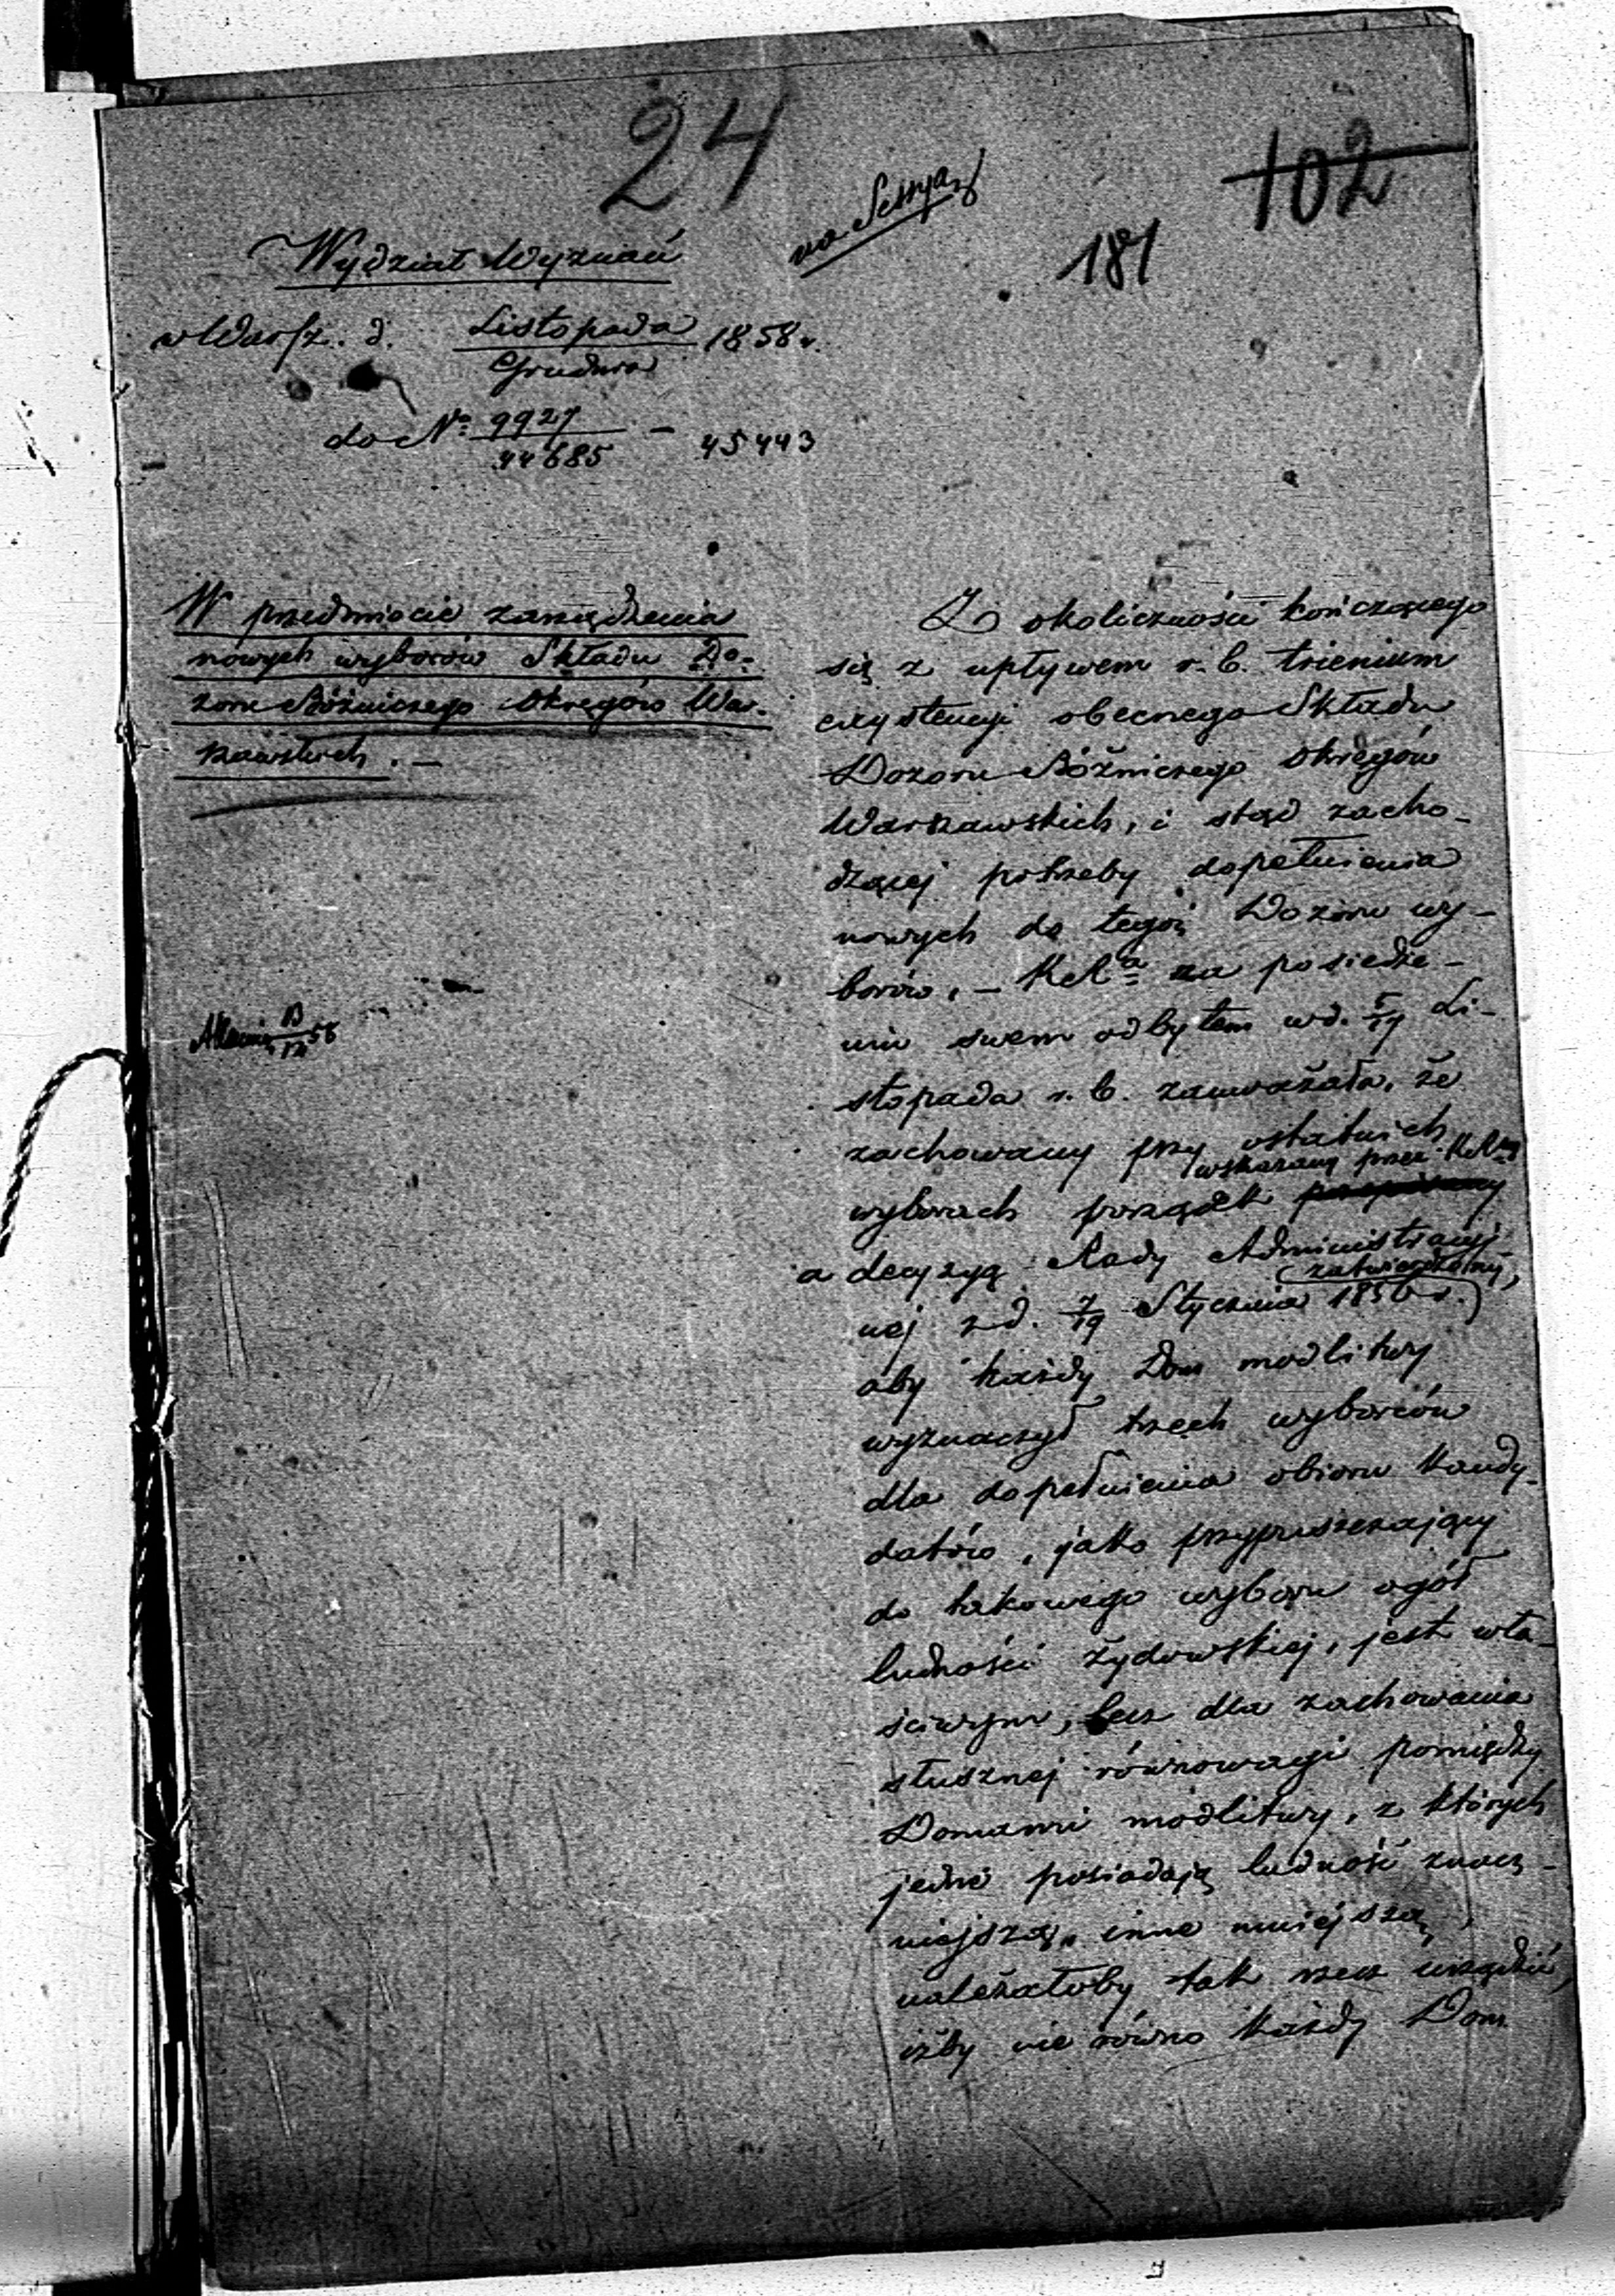 24
102
181
na Sessyą
Wydział Wyznań
w Warsz. d. Listopada 1858 r.
Grudnia
do No 9927 – 45443
44685
W przedmiocie zarządzenia
nowych wyborów Składu Do-
zoru Bóżniczego Okręgów War-
szawskich. –
58
Z okoliczności kończącego
się z upływem r. b. trienium
exystencyi obecnego Składu
Dozoru Bóżniczego Okręgów
Warszawskich, i stąd zacho-
dzącej potrzeby dopełnienia
nowych do tegoż Dozoru wy-
borów, – KRa na posiedze-
niu swem odbytem w d. 5/17 Li-
stopada r. b. zauważała, że
zachowany przy ostatnich
wskazany przez KRą
wyborach porządek przepisany
a decyzyą Rady Administracyj-
zatwierdzony,
nej z d. 7/19 Stycznia 1856 r.)
aby każdy Dom modlitwy
wyznaczył trzech wyborców
dla dopełnienia obioru kandy-
datów, jako przypuszczający
do takowego wyboru ogół
ludności żydowskiej, jest wła-
ściwym, lecz dla zachowania
słusznej równowagi pomiędzy
Domami modlitwy, z których
jedne posiadają ludność znacz-
niejszą, inne mniejszą,
należałoby tak rzecz urządzić,
iżby nie równo każdy Dom